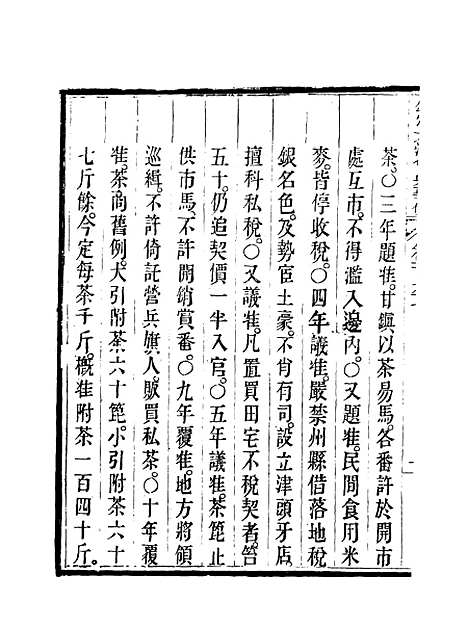 茶。〇三年題准。甘鎭以茶易馬。各番許於開市
處互市。不得濫入邊內。〇又題准。民閒食用米
麥。皆停收稅。〇四年議准。嚴禁州縣借落地稅
銀名色。及勢宦土豪。不肖有司。設立津頭牙店。
擅科私稅。〇又議准。凡置買田宅不稅契者。笞
五十。仍追契價一半入官。〇五年議准。茶篦止
供市馬。不許開銷賞番。〇九年覆准。地方將領
巡緝。不許倚託營兵旗人。販買私茶。〇十年覆
准。茶商舊例。大引附茶六十篦。小引附茶六十
七斤餘。今定每茶千斤。槪准附茶一百四十斤。